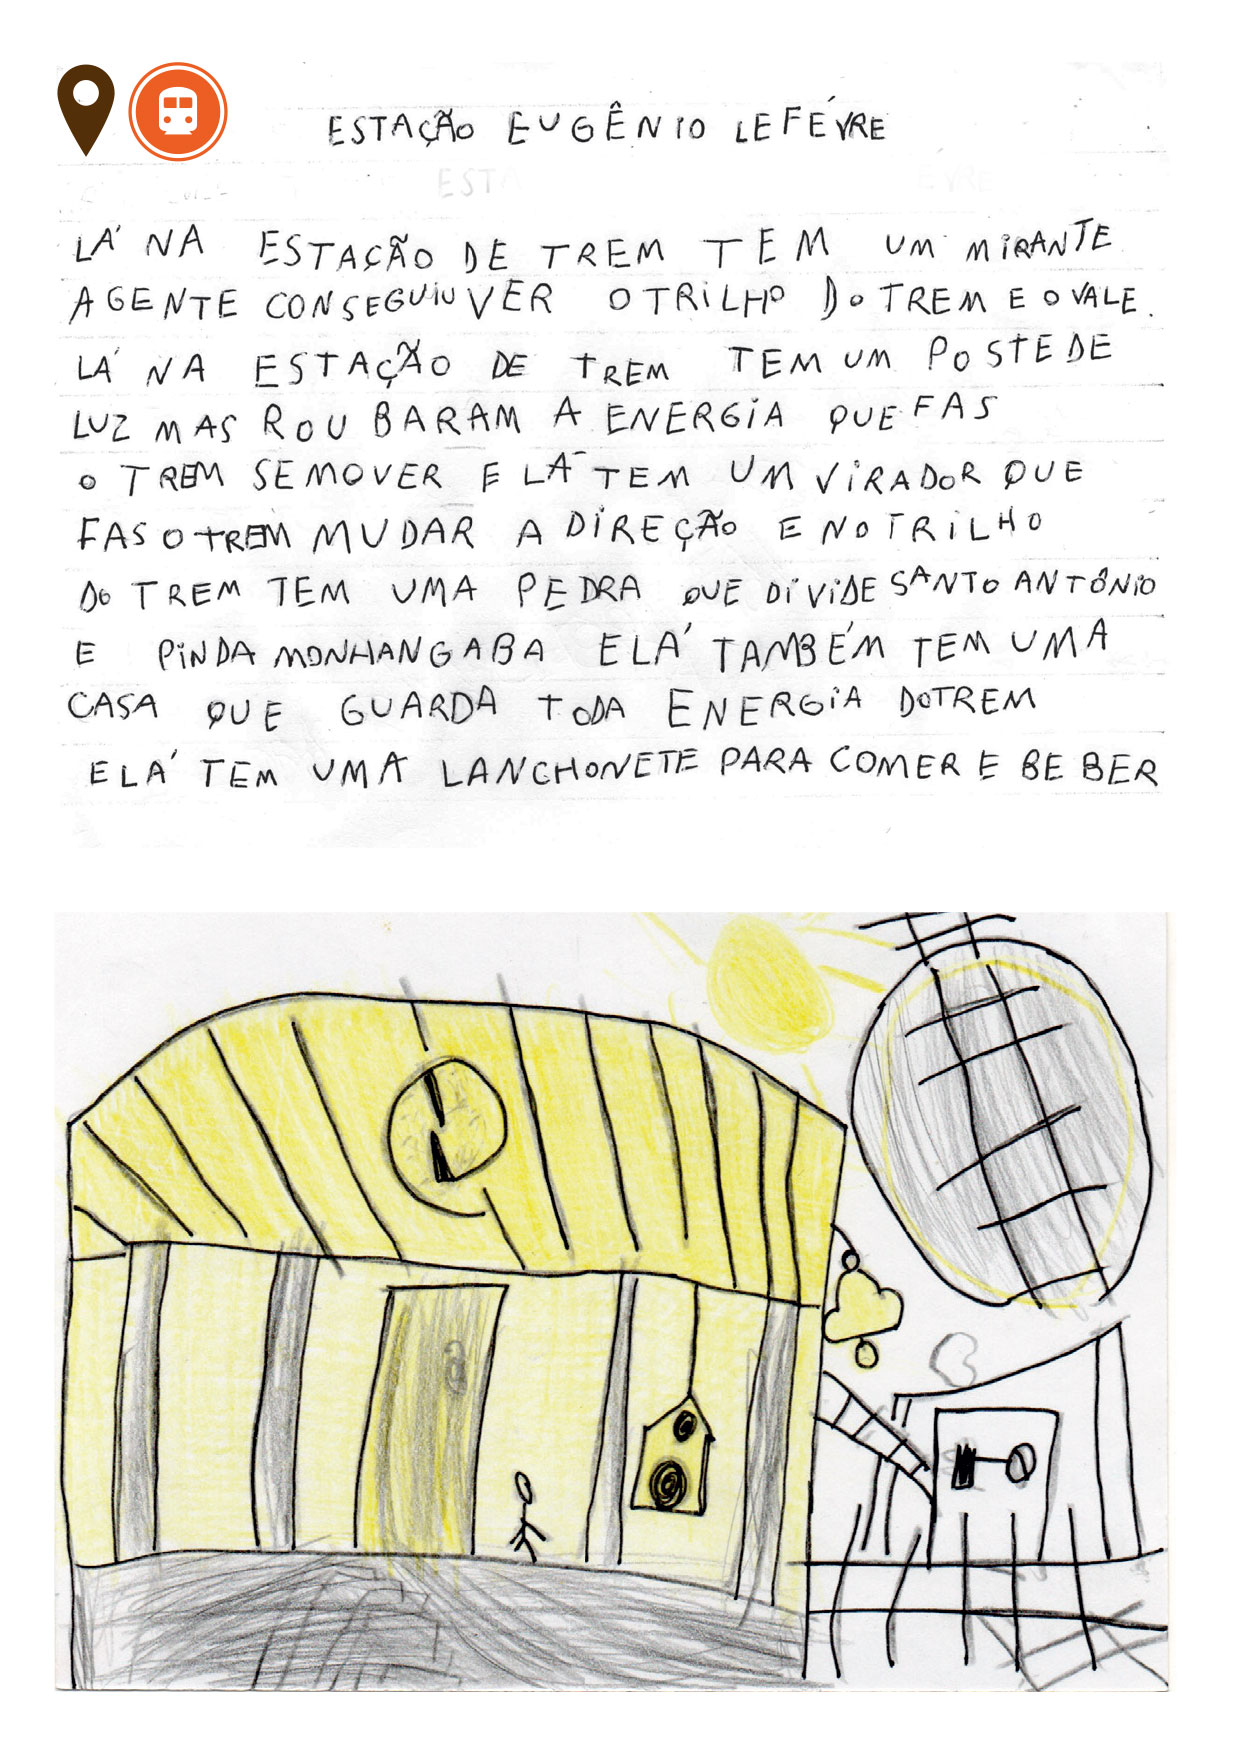 ESTAÇÃO EUGÊNIO LEFÉVRE
LÁ NA ESTAÇÃO DE TREM TEM UM MIRANTE
AGENTE CONSEGUIU VER O TRILHO DO TREM E O VALE.
LÁ NA ESTAÇÃO DE TREM TEM UM POSTE DE
LUZ MAS ROUBARAM A ENERGIA QUE FAS
O TREM SE MOVER E LÁ TEM UM VIRADOR QUE
FAS O TREM MUDAR A DIREÇÃO E NO TRILHO
DO TREM TEM UMA PEDRA QUE DIVIDE SANTO ANTÔNIO
E PINDAMONHANGABA E LÁ TAMBÉM TEM UMA
CASA QUE GUARDA TODA ENERGIA DO TREM
E LÁ TEM UMA LANCHONETE PARA COMER E BEBER